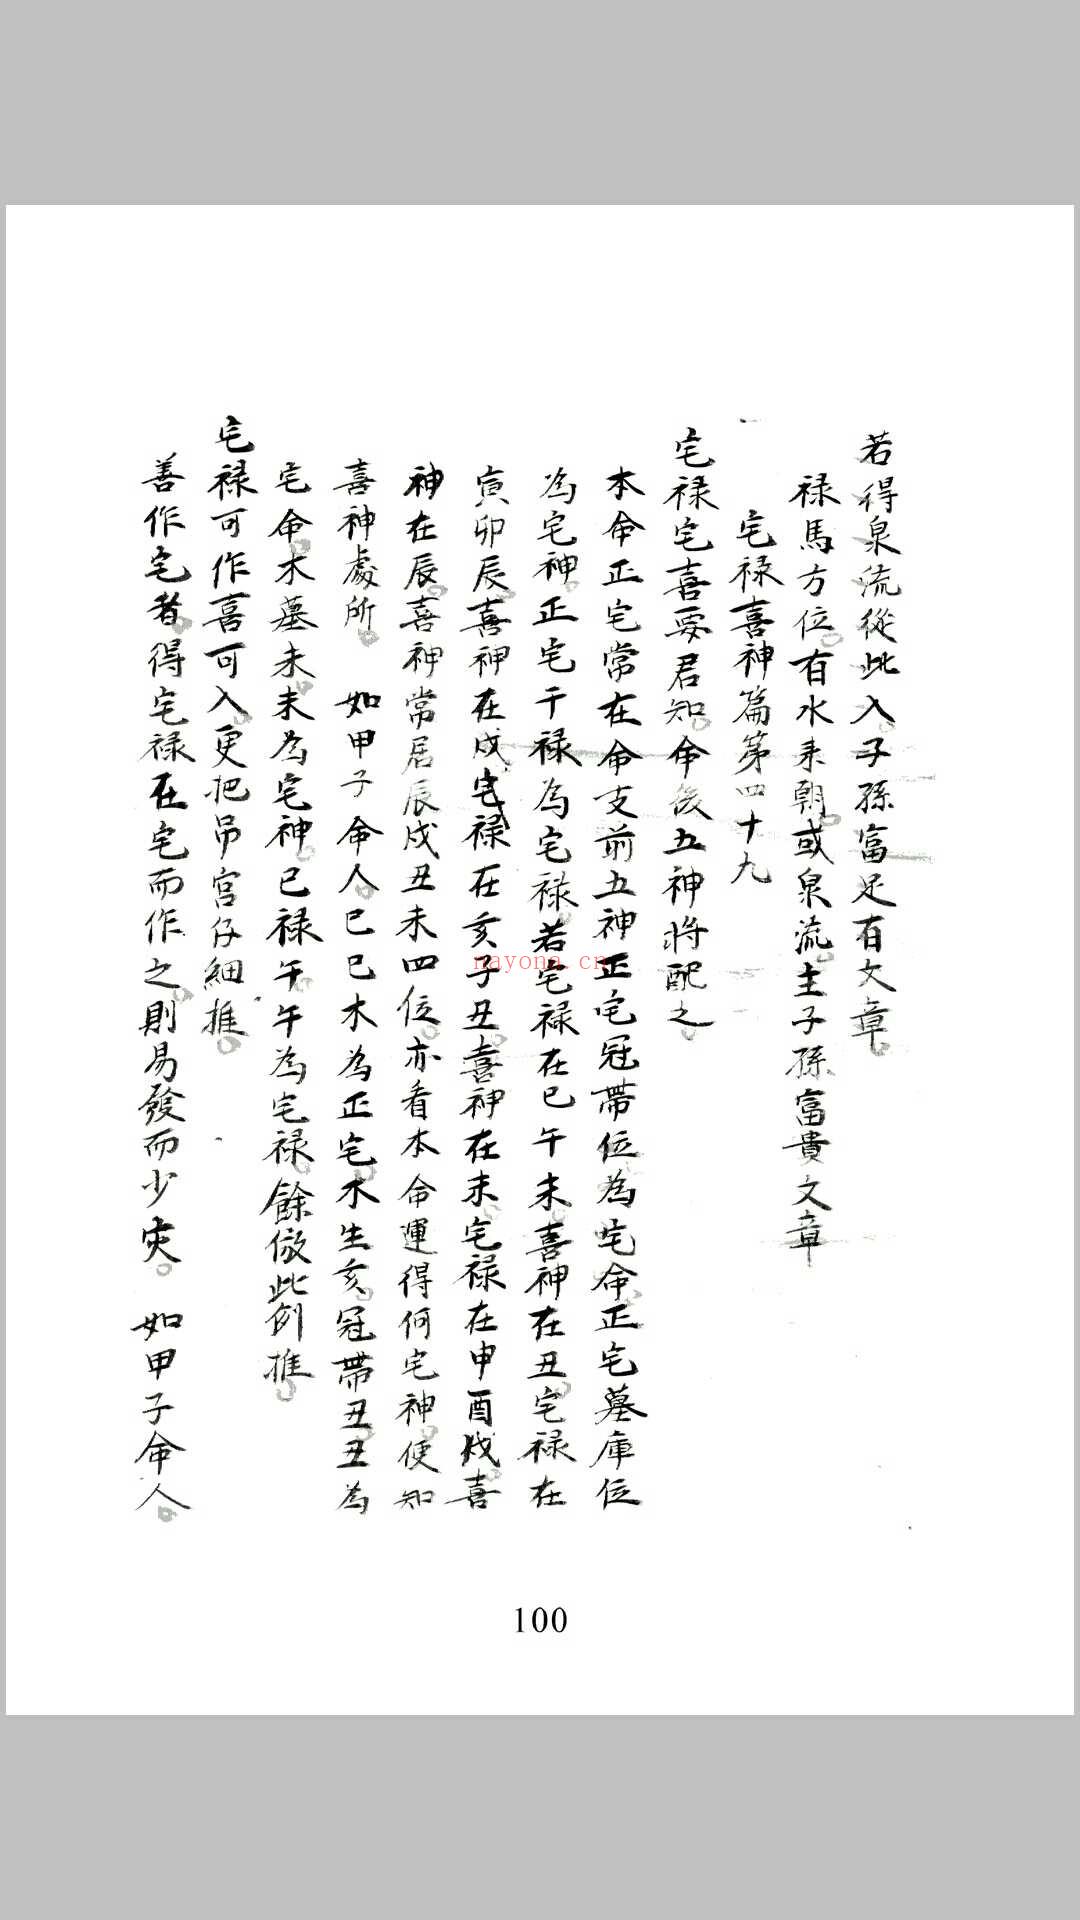 若得泉流從此入。子孫富足有文章。
禄馬方位。有水来朝。或泉流。主子孫富貴文章
宅禄喜神篇第四十九
宅禄宅喜要君知。命後五神將配之。
本命正宅常在命支前五神正宅冠帶位為宅命正宅墓庫位
為宅神。正宅干禄為宅禄。若宅禄在巳午未喜神在丑。宅禄在
寅卯辰。喜神在戌。宅禄在亥子丑。喜神在未。宅禄在申酉戌。喜
神在辰。喜神常居辰戌丑未四位。亦看本命運得何宅神。便知
喜神處所。 如甲子命人。巳巳木為正宅。木生亥。冠帶丑。丑為
宅命。木墓未。未為宅神。巳禄午。午為宅禄。餘倣此例推。
宅禄可作喜可入。更把吊宮仔細推。
善作宅者。得宅禄在宅而作之。則易發而少灾。 如甲子命人。
nayona.cn
100